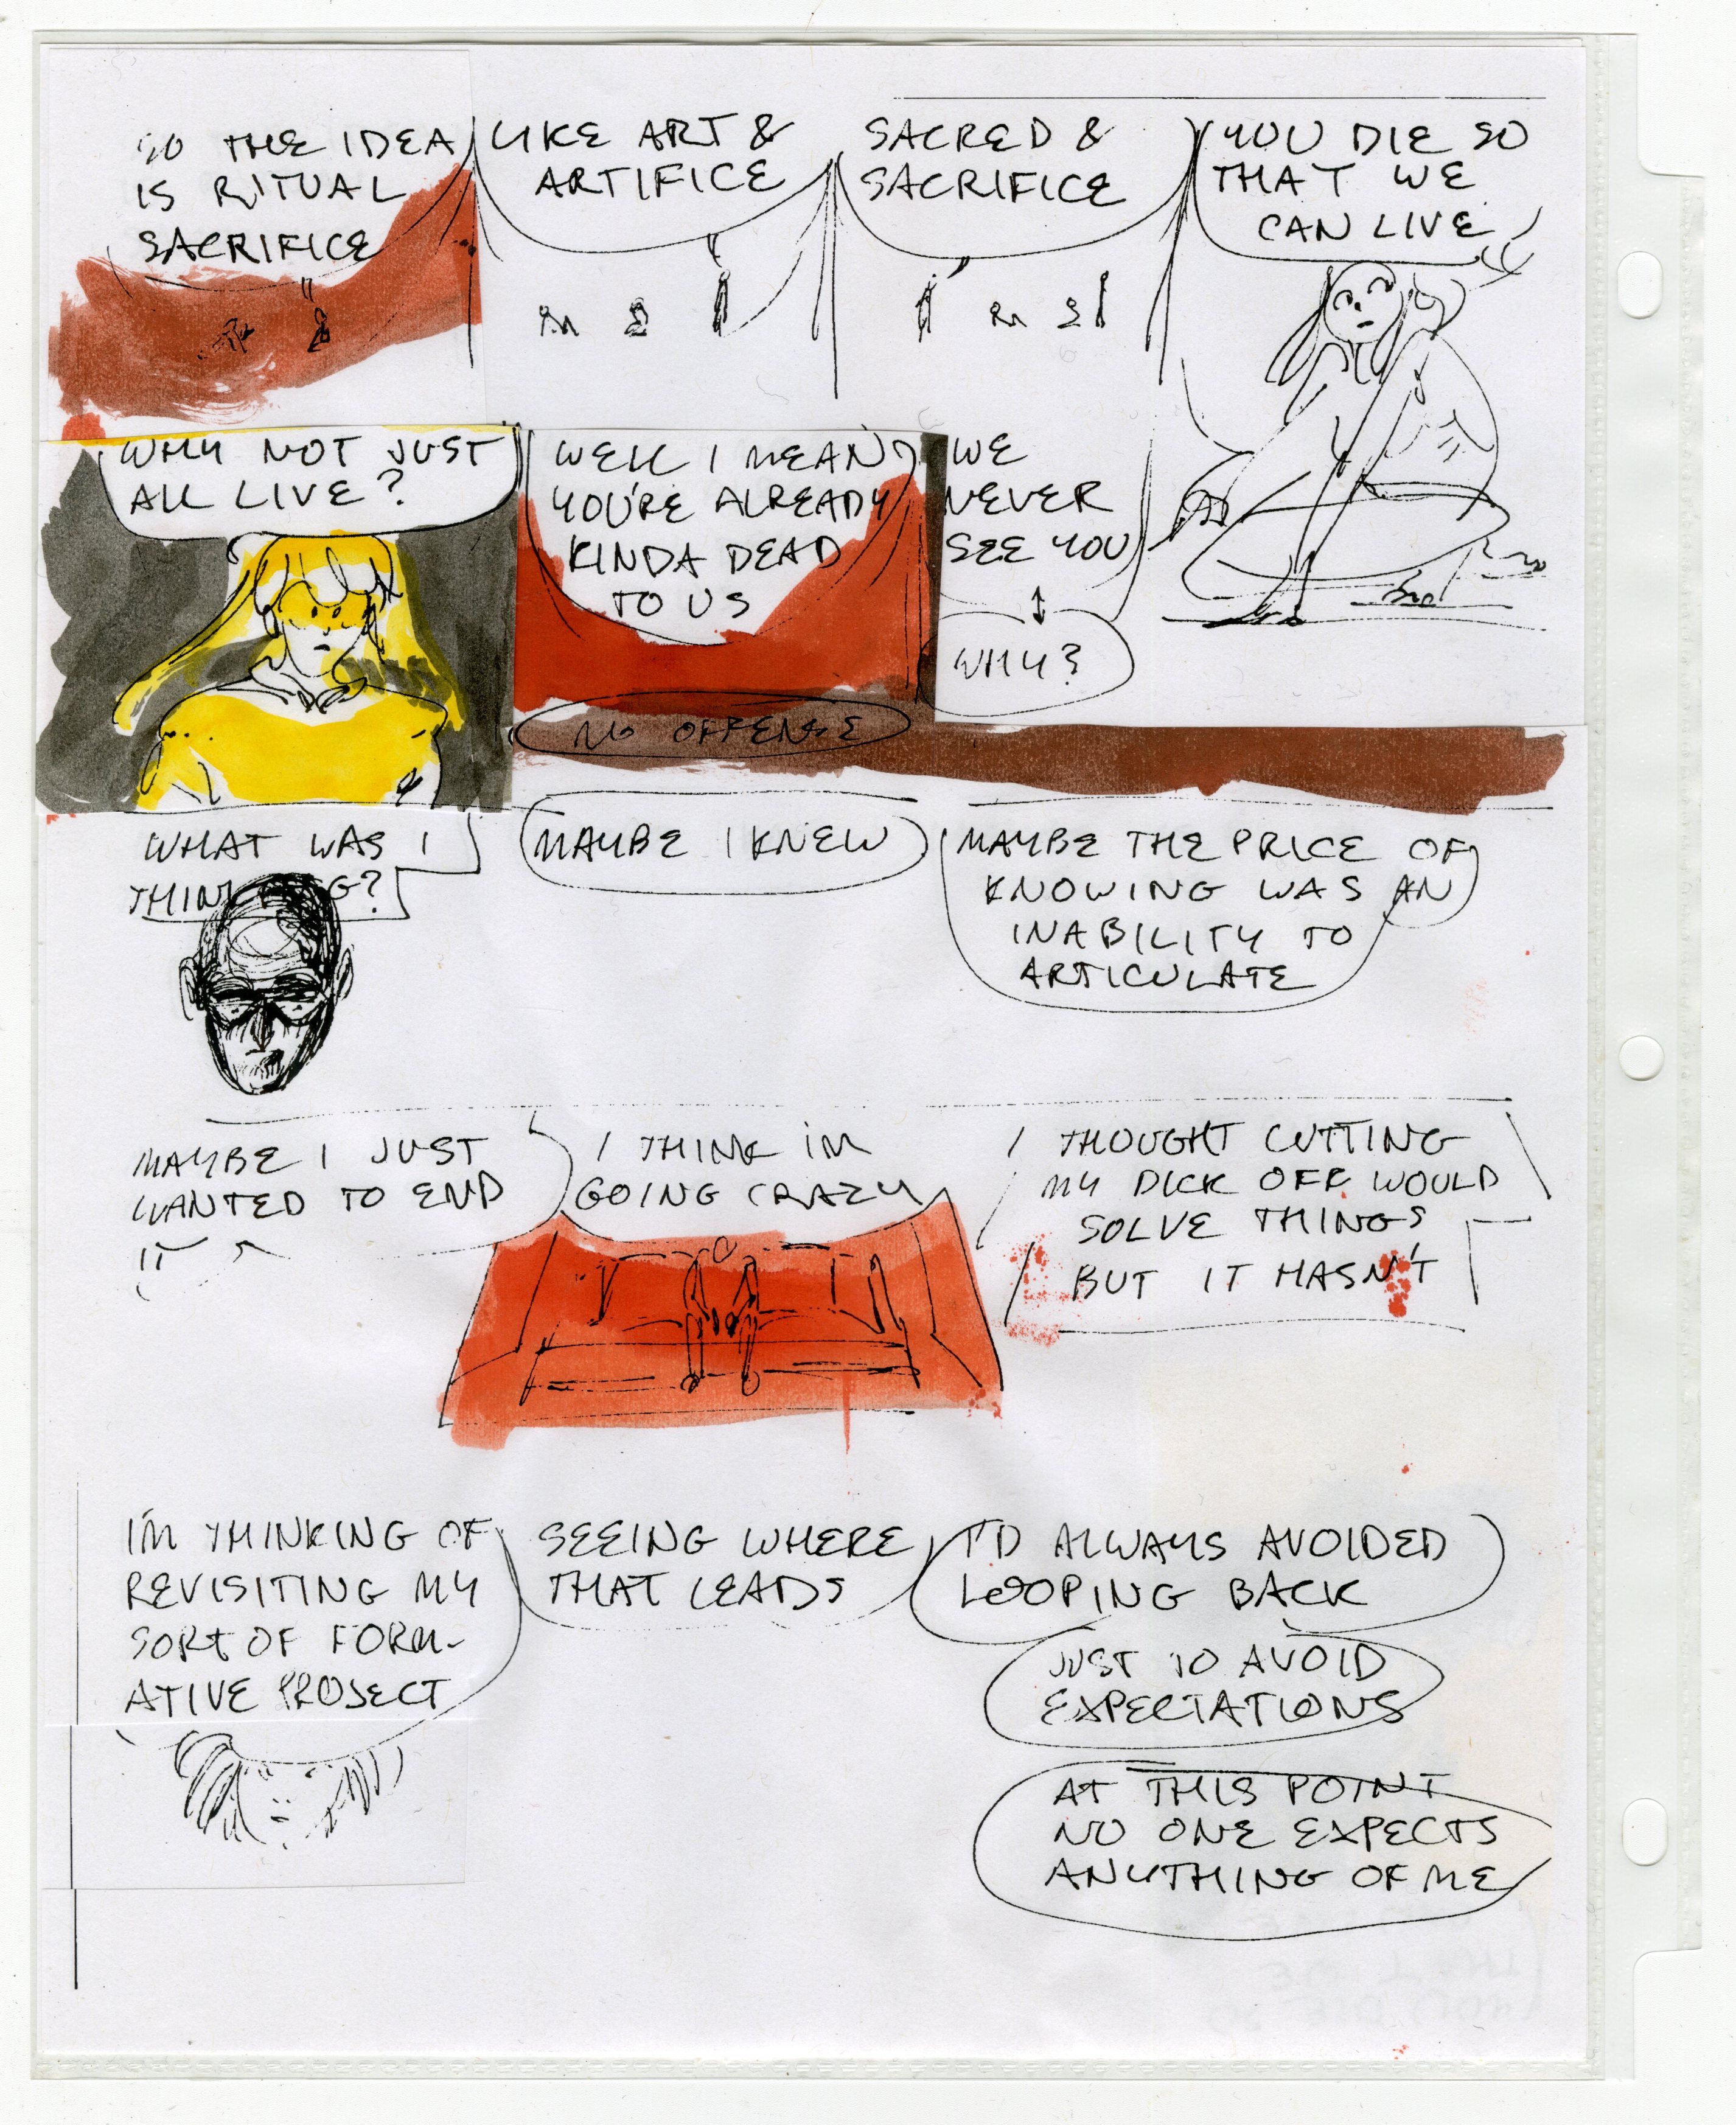 SO THE IDEA
IS RITUAL
SACRIFICE
LIKE ART &
ARTIFICE
SACRED &
SACRIFICE
YOU DIE SO
THAT WE
CAN LIVE
WHY NOT JUST
ALL LIVE?
WELL I MEAN
YOU'RE ALREADY
KINDA DEAD
TO US
NO OFFENSE
WE
NEVER
SEE YOU
WHY?
WHAT WAS I
THINKING?
MAYBE I KNEW
MAYBE THE PRICE OF
KNOWING WAS AN
INABILITY TO
ARTICULATE
MAYBE I JUST
WANTED TO END
IT
I THINK IM
GOING CRAZY
I THOUGHT CUTTING
MY DICK OFF WOULD
SOLVE THINGS
BUT IT HASN'T
I'M THINKING OF
REVISITING MY
SORT OF FORM-
ATIVE PROJECT
SEEING WHERE
THAT LEADS
I'D ALWAYS AVOIDED
LOOPING BACK
JUST TO AVOID
EXPECTATIONS
AT THIS POINT
NO ONE EXPECTS
ANYTHING OF ME